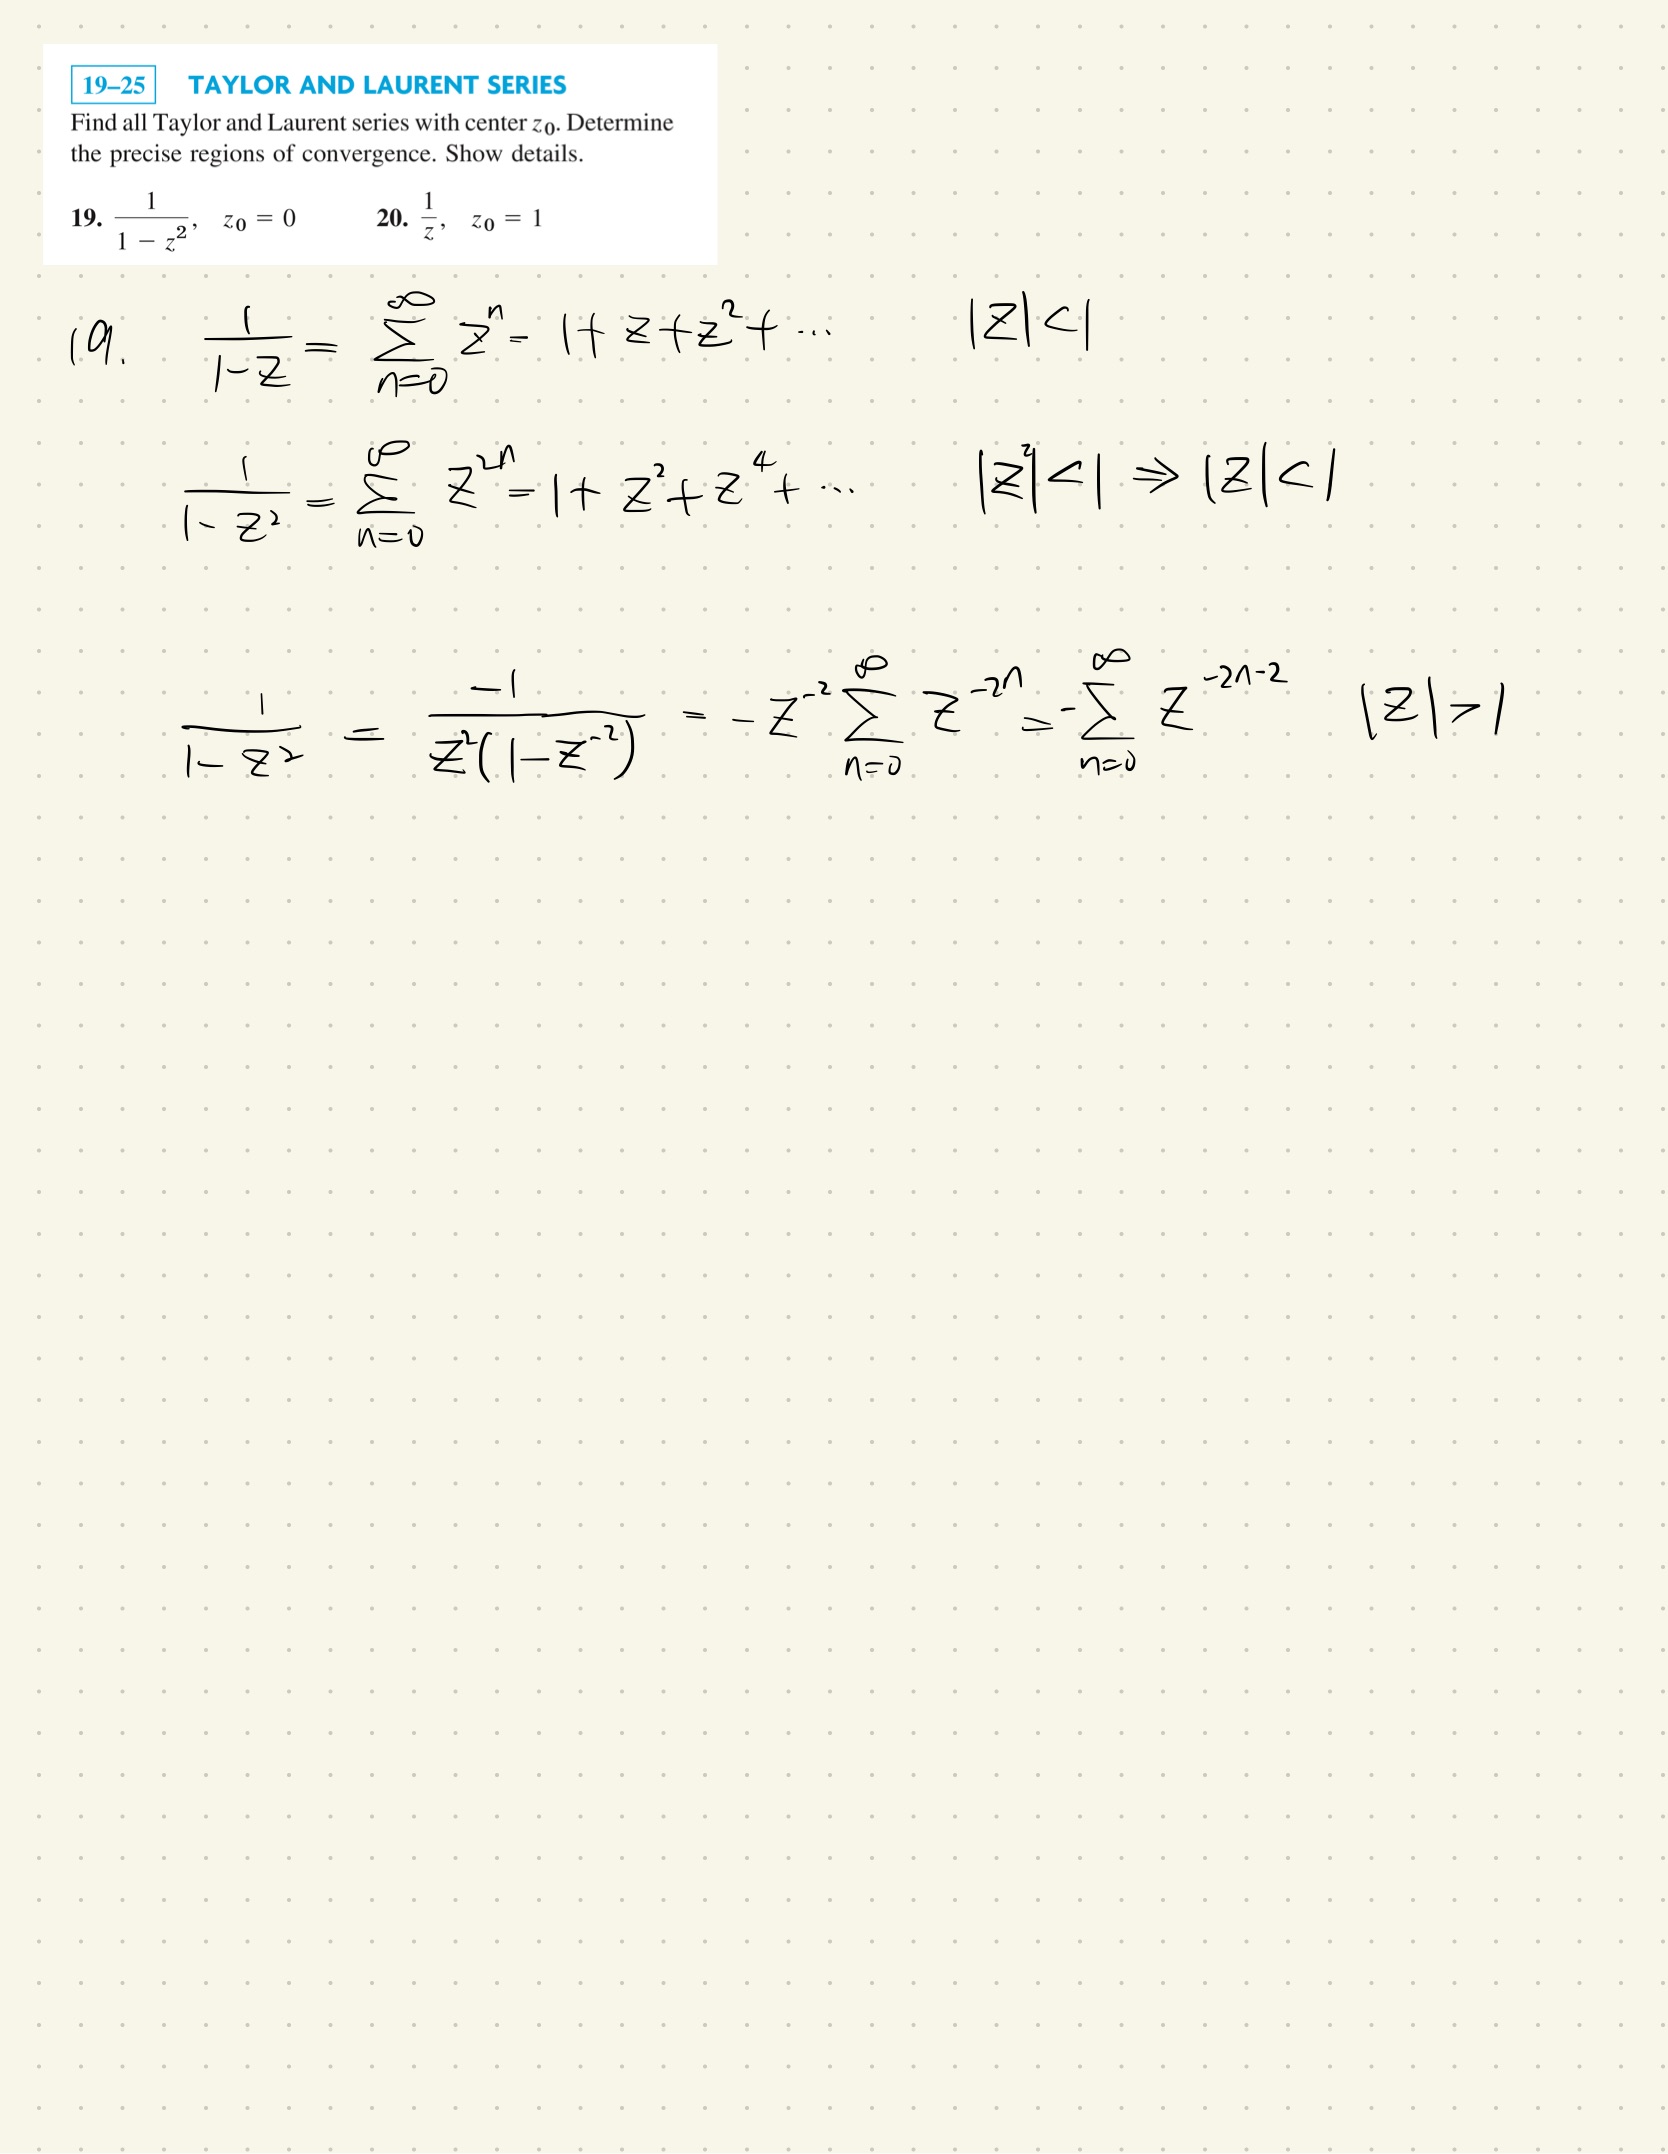 19–25 TAYLOR AND LAURENT SERIES
Find all Taylor and Laurent series with center z₀. Determine
the precise regions of convergence. Show details.
19. 1/(1 − z²), z₀ = 0 20. 1/z, z₀ = 1
19. 1/(1-z) = ∑_{n=0}^{∞} z^n = 1 + z + z² + ... |z| < 1
1/(1-z²) = ∑_{n=0}^{∞} z^{2n} = 1 + z² + z⁴ + ... |z²| < 1 ⇒ |z| < 1
1/(1-z²) = -1/(z²(1-z^{-2})) = -z^{-2} ∑_{n=0}^{∞} z^{-2n} = -∑_{n=0}^{∞} z^{-2n-2} |z| > 1